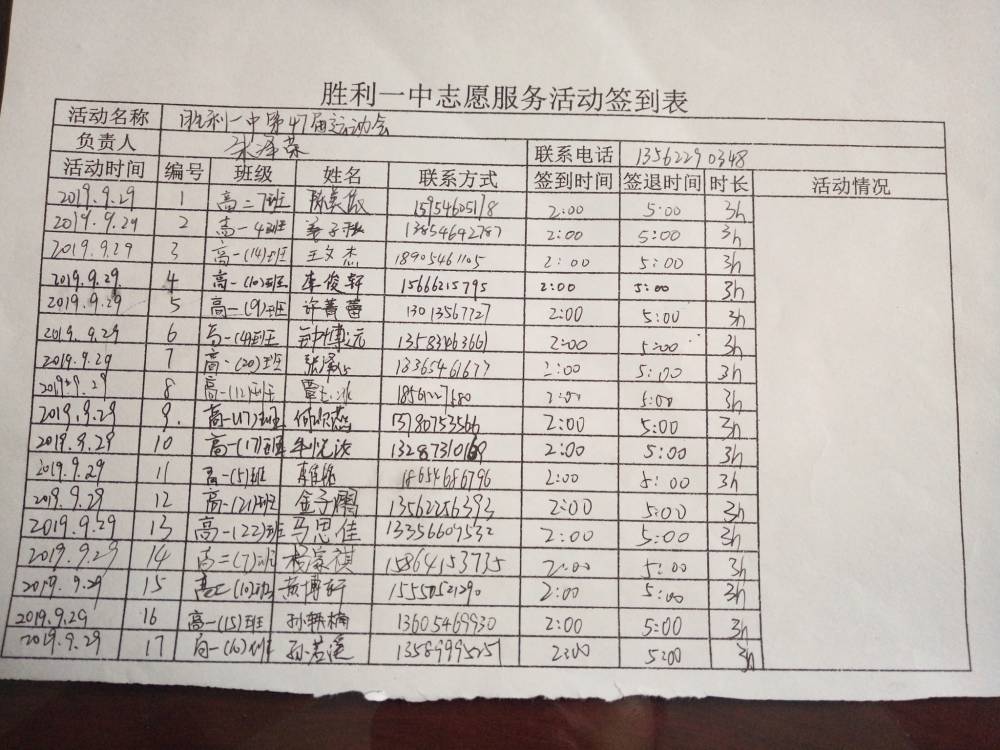 胜利一中志愿服务活动签到表
活动名称 胜利一中第47届运动会
负责人 联系电话 13562290348
活动时间 编号 班级 姓名 联系方式 签到时间 签退时间 时长 活动情况
2019.9.29 1 高二7班 15954605178 2:00 5:00 3h
2019.9.29 2 高一4班 13854642787 2:00 5:00 3h
2019.9.29 3 高一(14)班 王文杰 18905461105 2:00 5:00 3h
2019.9.29. 4 高一(10)班 李俊轩 15666215795 2:00 5:00 3h
2019.9.29 5 高一(9)班 许菁蕾 13013567727 2:00 5:00 3h
2019.9.29 6 高一(4)班 钟博远 13583463661 2:00 5:00 3h
2019.9.29 7 高一(20)班 18365461677 2:00 5:00 3h
2019.9.29 8 高一(12)班 2:00 5:00 3h
2019.9.29 9. 高一(17)班 15780753566 2:00 5:00 3h
2019.9.29 10 高一(17)班 13287310169 2:00 5:00 3h
2019.9.29 11 高一(5)班 18654686796 2:00 5:00 3h
2019.9.29 12 高一(21)班 金子熠 13562256393 2:00 5:00 3h
2019.9.29 13 高一(22)班 马思佳 13356607532 2:00 5:00 3h
2019.9.29 14 高二(7)班 杨家祺 15864153735 2:00 5:00 3h
2019.9.29 15 高二(10)班 黄博轩 15550521290 2:00 5:00 3h
2019.9.29 16 高一(15)班 孙轶楠 13605469930 2:00 5:00 3h
2019.9.29 17 高一(16)班 13589995251 2:00 5:00 3h